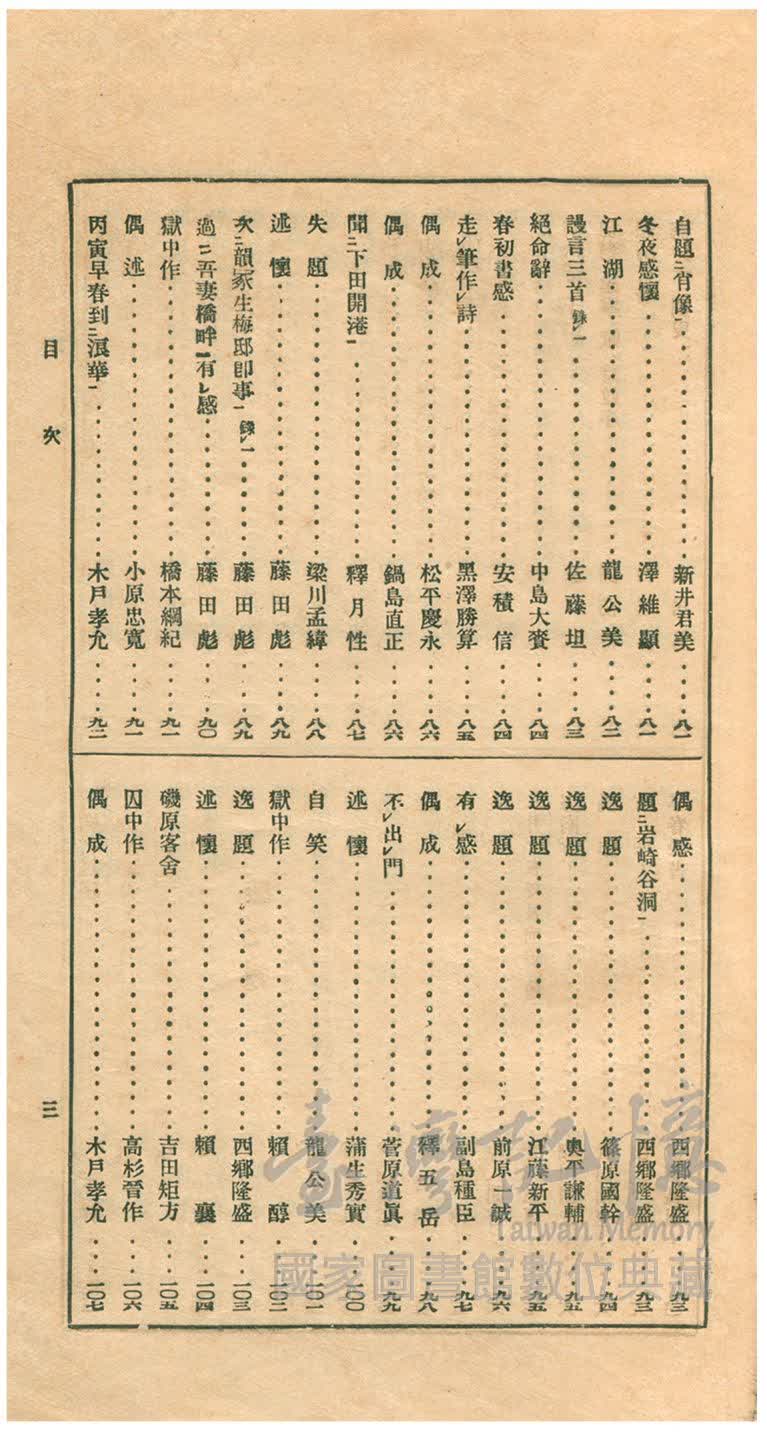 自題二肖像一 新井君美 八一
冬夜感懷 澤維顯 八一
江湖 龍公美 八二
謾言三首錄レ一 佐藤坦 八三
絕命辭 中島大賚 八四
春初書感 安積信 八四
走レ筆作レ詩 黑澤勝算 八五
偶成 松平慶永 八六
偶成 鍋島直正 八六
聞二下田開港一 釋月性 八七
失題 梁川孟緯 八八
述懷 藤田彪 八九
次二韻冢生梅邸卽事一錄レ一 藤田彪 八九
過二吾妻橋畔一有レ感 藤田彪 九〇
獄中作 橋本綱紀 九一
偶述 小原忠寬 九一
丙寅早春到二浪華一 木戶孝允 九二
偶感 西鄉隆盛 九三
題二岩崎谷洞一 西鄉隆盛 九三
逸題 篠原國幹 九四
逸題 奧平謙輔 九五
逸題 江藤新平 九五
逸題 前原一誠 九六
有レ感 副島種臣 九七
偶成 釋五岳 九八
不レ出レ門 菅原道眞 九九
述懷 蒲生秀實 一〇〇
自笑 龍公美 一〇一
獄中作 賴醇 一〇二
逸題 西鄉隆盛 一〇三
述懷 賴襄 一〇四
磯原客舍 吉田矩方 一〇五
囚中作 高杉晉作 一〇六
偶成 木戶孝允 一〇七
目次
三
臺灣記憶
Taiwan Memory
國家圖書館數位典藏